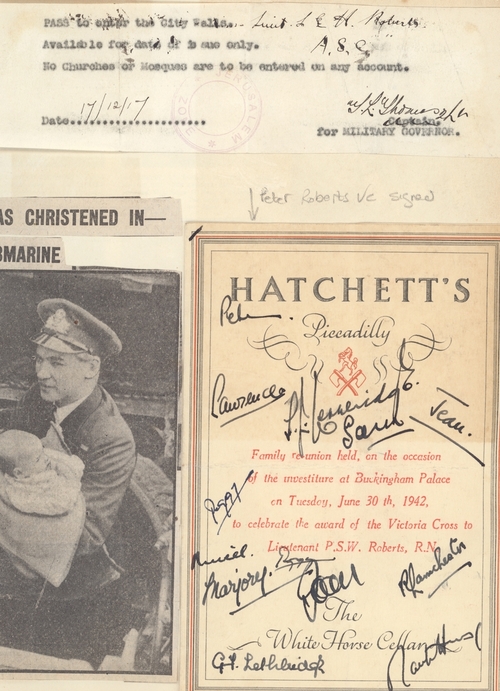 PASS to enter the City Walls... Lieut. L E H. Roberts
Available for date of issue only. A.S.C.
No Churches or Mosques are to be entered on any account.
JERUSALEM
Date 17/12/17
Captain.
for MILITARY GOVERNOR.
Peter Roberts VC signed
AS CHRISTENED IN—
BMARINE
HATCHETT'S
Peter.
Piccadilly
Lawrence
Jean.
Family reunion held, on the occasion
of the investiture at Buckingham Palace
on Tuesday, June 30th, 1942,
to celebrate the award of the Victoria Cross to
Lieutenant P.S.W. Roberts, R.N.
Muriel.
Marjory.
The
White Horse Cellar